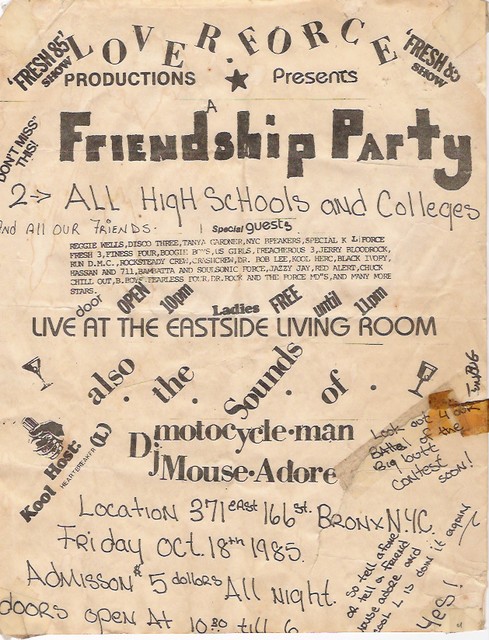 "FRESH 85" SHOW
LOVER.FORCE
"FRESH 85" SHOW
PRODUCTIONS ★ Presents
A
"DON'T MISS THIS!
Friendship Party
2-> ALL High Schools and Colleges
And All OUR Friends.
Special guests
REGGIE WELLS,DISCO THREE,TANYA GARDNER,NYC BREAKERS,SPECIAL K L FORCE
FRESH 3,FINESS FOUR,BOOGIE BOYS,US GIRLS,TREACHEROUS 3,JERRY BLOODROCK,
RUN D.M.C.,ROCKSTEADY CREW,CRASHCREW,DR. BOB LEE,KOOL HERC,BLACK IVORY,
HASSAN AND 711,BAMBATTA AND SOULSONIC FORCE,JAZZY JAY,RED ALERT,CHUCK
CHILL OUT,B.BOYS FEARLESS FOUR.DR.ROCK AND THE FORCE MD'S,AND MANY MORE
STARS.
door OPEN 10pm Ladies FREE until 11pm
LIVE AT THE EASTSIDE LIVING ROOM
also . the . Sounds . of .
Kool Host:
HEARTBREAKER (L)
Dj motocycle·man
Dj Mouse·Adore
Look out 4 our
Battel of the
Big butt
Contest
Soon!
Location 371 east 166 st. Bronx N.Y.C.
Friday Oct. 18th 1985.
Admisson $5 dollors All Night.
doors open At 10:30 till 6
So tell afone
or tell a friend
Mouse adore and
Kool L is doin it again
Yes!